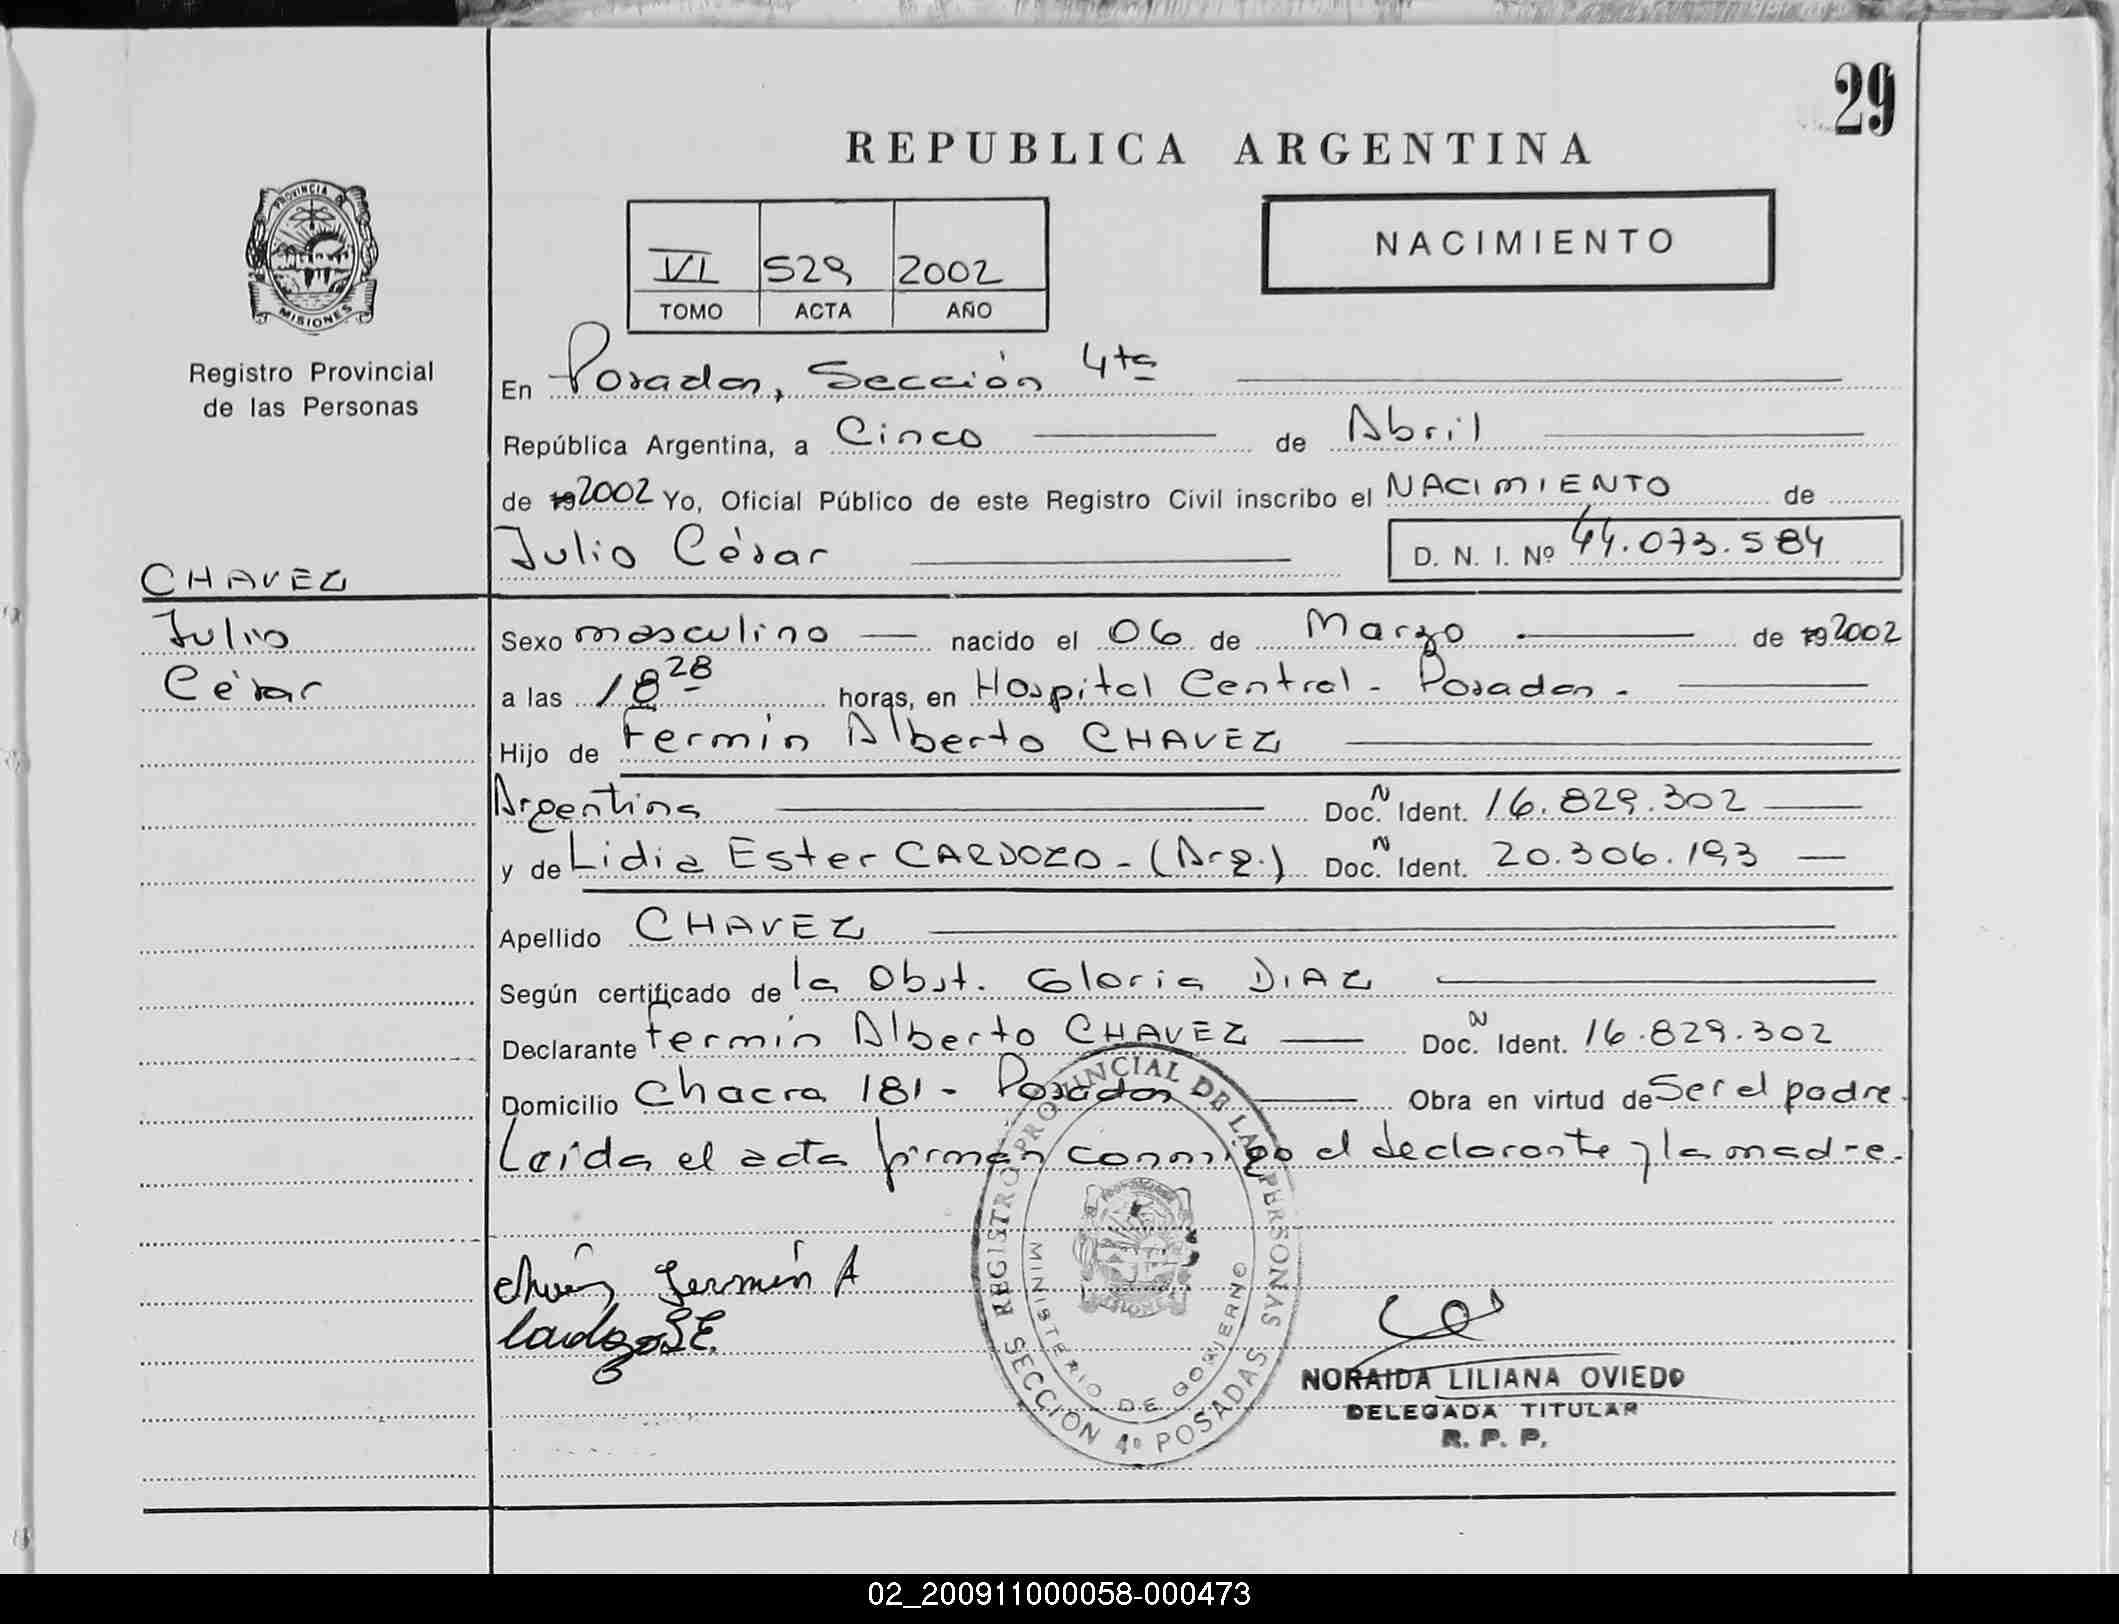 29
REPUBLICA ARGENTINA
PROVINCIA DE
MISIONES
Registro Provincial
de las Personas
VI 529 2002
TOMO ACTA AÑO
NACIMIENTO
En Posadas, Sección 4ta
República Argentina, a Cinco de Abril
de 19 2002 Yo, Oficial Público de este Registro Civil inscribo el NACIMIENTO de
Julio César D. N. I. Nº 44.073.584
CHAVEZ
Julio
César
Sexo masculino nacido el 06 de Marzo de 19 2002
a las 18 28 horas, en Hospital Central - Posadas -
Hijo de Fermín Alberto CHAVEZ
Argentina Doc. N Ident. 16.829.302
y de Lidia Ester CARDOZO - (Arg.) Doc. N Ident. 20.306.193
Apellido CHAVEZ
Según certificado de la Obst. Gloria DIAZ
Declarante Fermín Alberto CHAVEZ Doc. N Ident. 16.829.302
Domicilio Chacra 181 - Posadas Obra en virtud de Ser el padre.
Leída el acta firman conmigo el declarante y la madre.
REGISTRO PROVINCIAL DE LAS PERSONAS
MINISTERIO DE GOBIERNO
SECCION 4º POSADAS
Fermín A
NORAIDA LILIANA OVIEDO
DELEGADA TITULAR
R. P. P.
02_200911000058-000473